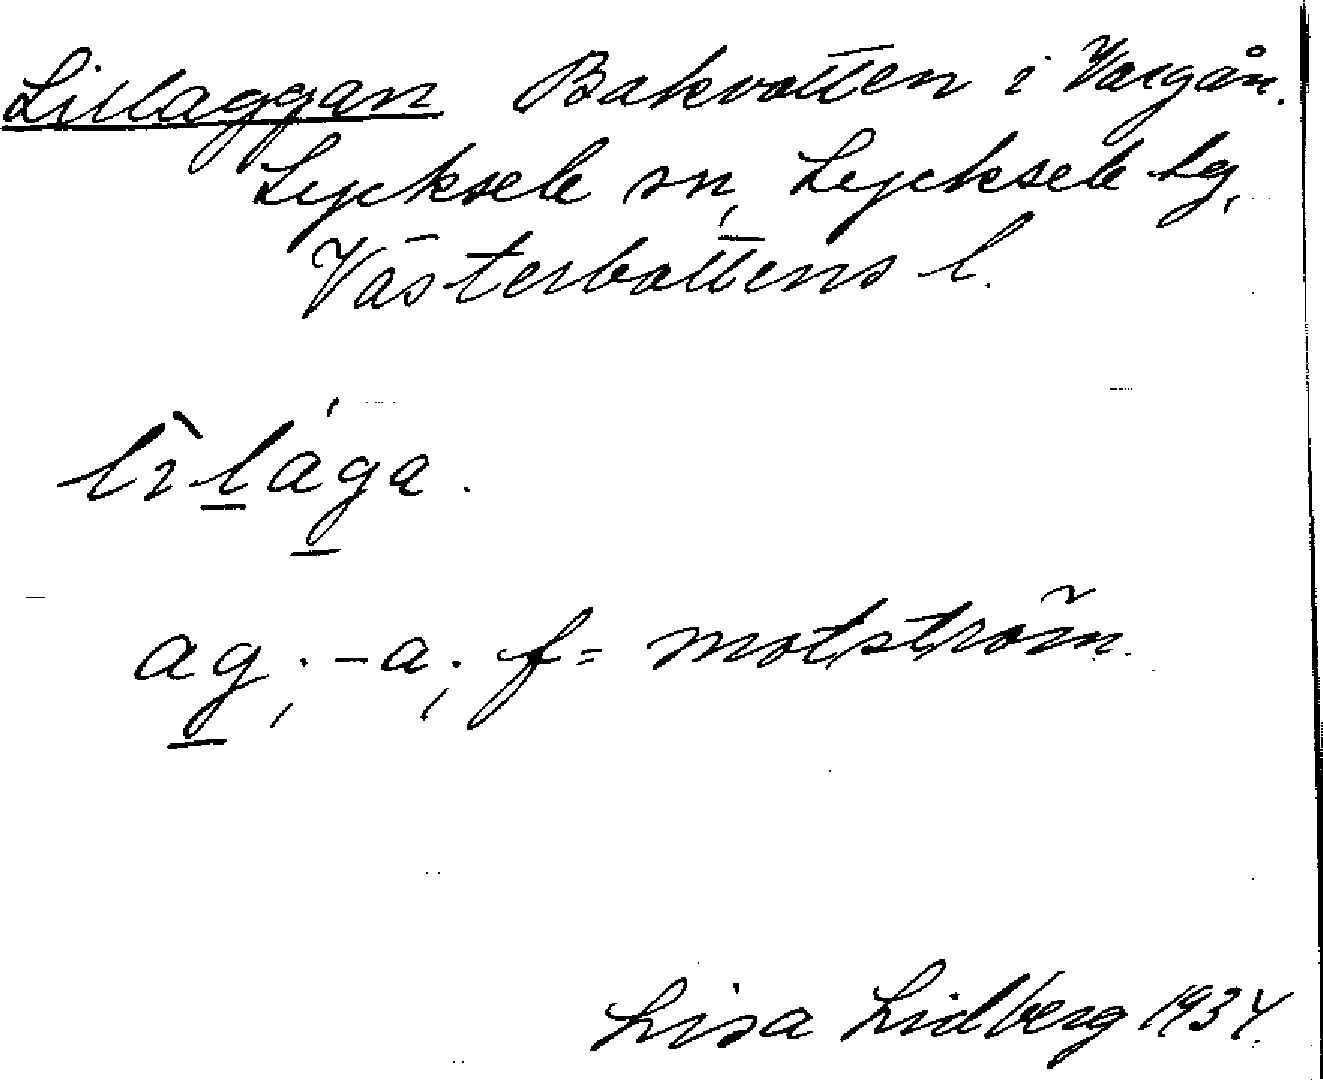 Lillaggan Bakvatten i Vargån.
Lycksele sn, Lycksele lg,
Västerbottens l.
lìlága.
ag, -a, f= motström.
Lisa Lidberg 1934.